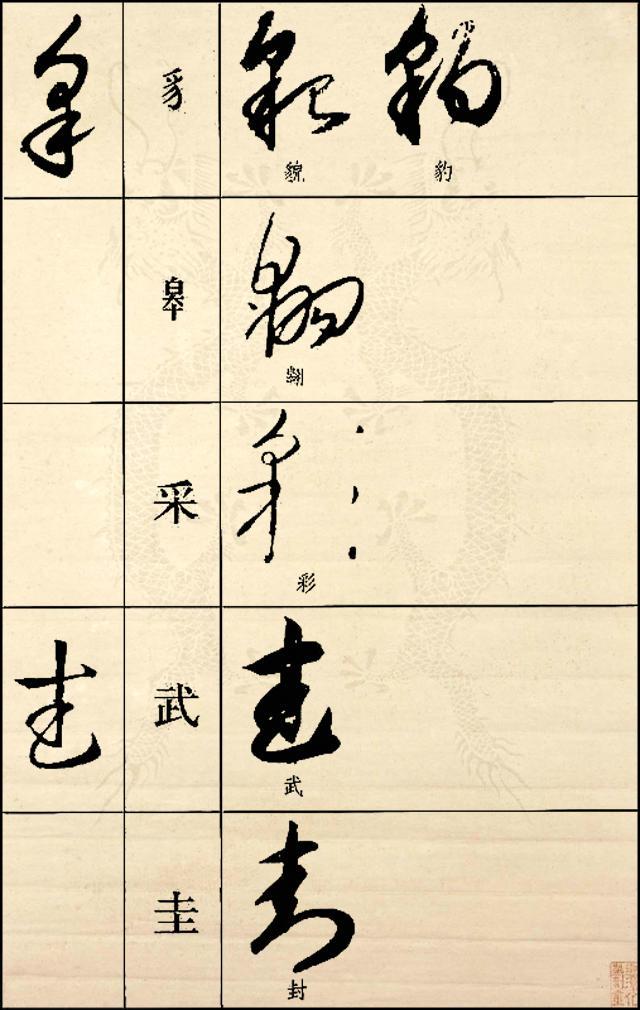 豸
貌 豹
皋
翱
采
彩
武
武
圭
封